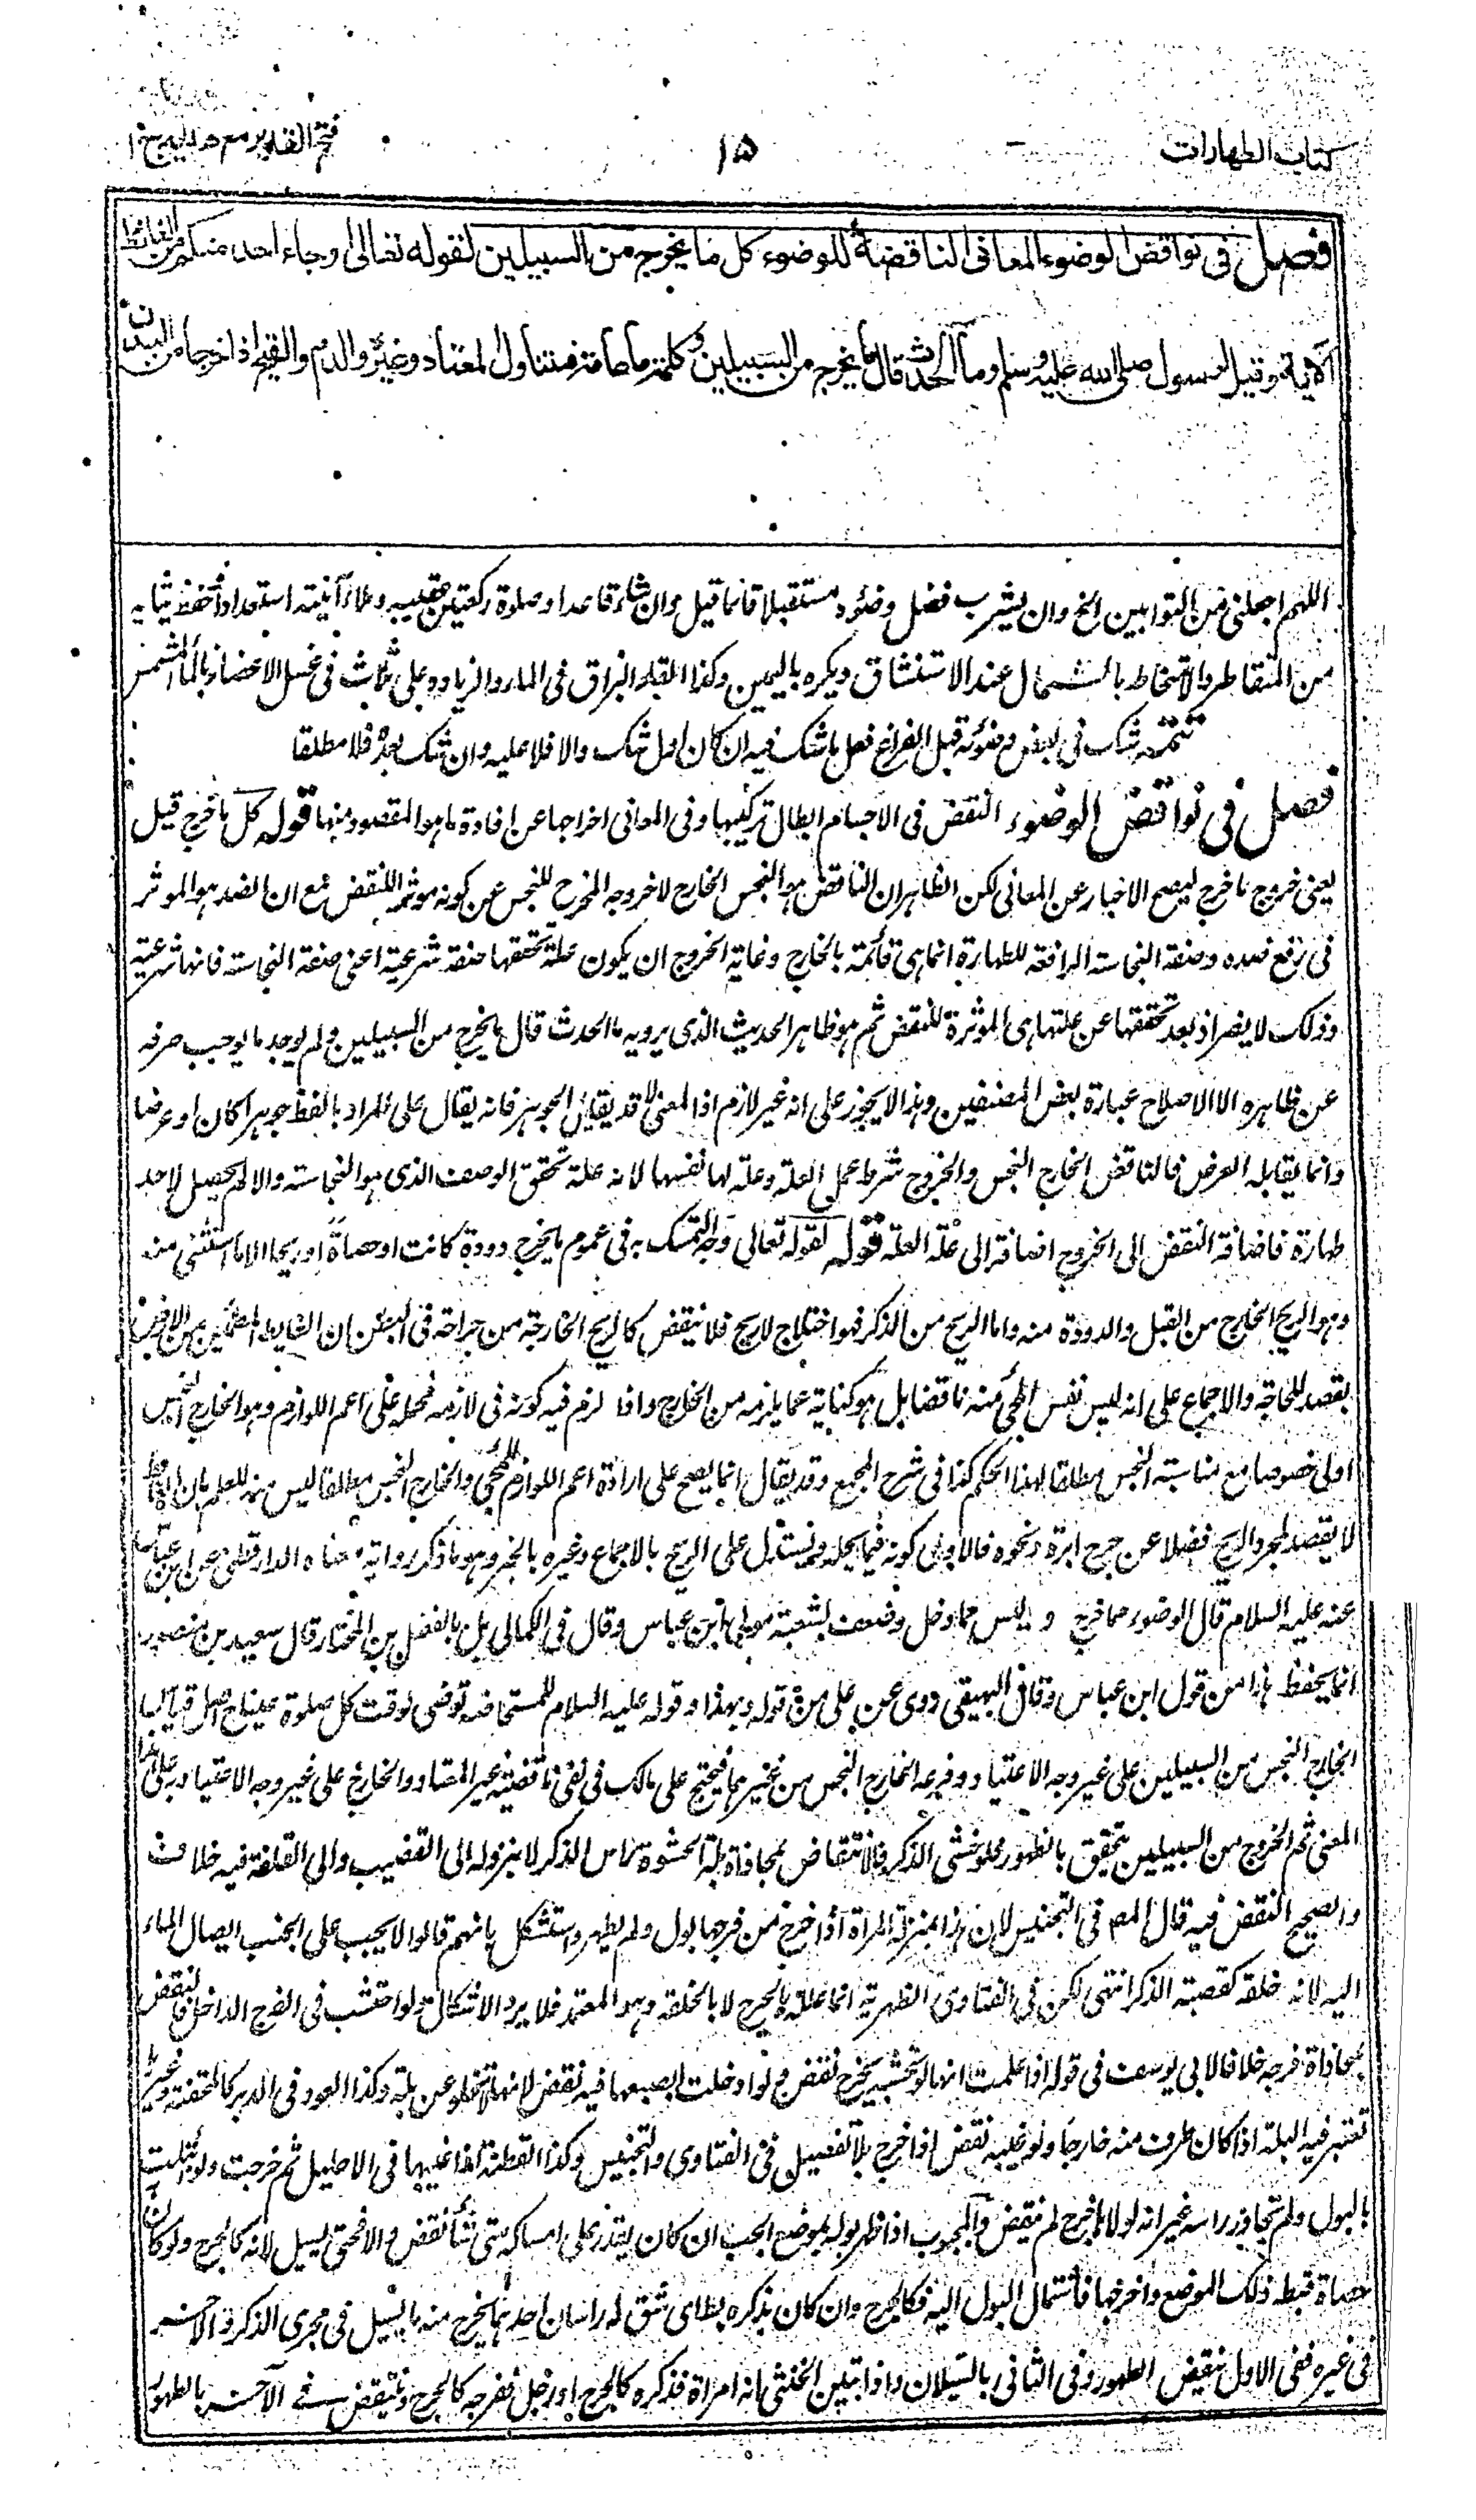 كتاب الطهارات
١٥
فتح القدير مع هدايه ج ١
فصل في نواقض الوضوء المعاني الناقضة للوضوء كل ما يخرج من السبيلين لقوله تعالى وجاء احد منكم من الغائط
الآية وقيل لرسول صلى الله عليه وسلم وما الحدث قال ما يخرج من السبيلين وكلمة ما عامة فتتناول المعتاد وغيره والدم والقيح اذا خرجا من البدن
اللهم اجعلني من التوابين الخ وان يشرب فضل وضوءه مستقبلا قائما قيل وان شاء قاعدا وصلوة ركعتين عقيبه وملء آنيته استعدادا وحفظ ثيابه
من المتقاطر والامتخاط بالشمال عند الاستنشاق ويكره باليمين وكذا القاء البزاق في الماء والزيادة على ثلاث في غسل الاعضاء وبالماء المشمس
تتمه شك في بعض وضوئه قبل الفراغ فعل ما شك فيه ان كان اول شك والا فلا عليه وان شك بعده فلا مطلقا
فصل في نواقض الوضوء النقض في الاجسام ابطال تركيبها وفي المعاني اخراجها عن افادة ما هو المقصود منها قوله كل ما خرج قيل
يعني خروج ما خرج ليصح الاخبار عن المعاني لكن الظاهر ان الناقض هو النجس الخارج لا خروجه المخرج للنجس عن كونه موثرا للنقض مع ان الضد هو الموثر
في رفع ضده وصفة النجاسة الرافعة للطهارة انما هي قائمة بالخارج وغاية الخروج ان يكون علة تحققها صفة شرعية اعني صفة النجاسة فانها شرعية
وذلك لا يضر اذ بعد تحققها عن علتها هي الموثرة للنقض ثم هو ظاهر الحديث الذي يرويه ما الحدث قال ما يخرج من السبيلين ولم يوجد ما يوجب صرفه
عن ظاهره الا الاصلاح عبارة بعض المصنفين وهذا لا يجوز على انه غير لازم اذ المعنى لا قد يقابل الجوهر فانه يقال على المراد باللفظ جوهرا كان او عرضا
وانما يقابله العرض فالناقض الخارج النجس والخروج شرط عمل العلة وعلة لها نفسها لانه علة تحقق الوصف الذي هو النجاسة والا لم يحصل لاحد
طهارة فاضافة النقض الى الخروج اضافة الى علة العلة قوله لقوله تعالى وجه التمسك به في عموم ما يخرج دودة كانت او حصاة او ريحا الا ما استثنى منه
وهو الريح الخارج من القبل والدودة منه واما الريح من الذكر فهو اختلاج لا ريح فلا ينقض كالريح الخارجة من جراحة في البطن ان الغايط المطمئن من الارض
يقصد للحاجة والاجماع على انه ليس نفس المجي منه ناقضا بل هو كناية عما يلزمه من الخارج واذا لزم فيه كونه في لازمه فحمله على اعم اللوازم وهو الخارج النجس
اولى خصوصا مع مناسبة النجس مطلقا لهذا الحكم كذا في شرح المجمع وقد يقال انما يصح على ارادة اعم اللوازم للمجي والخارج النجس مطلقا ليس منه للعلم بان الغايط
لا يقصد لمجرد الريح فضلا عن جرح ابرة ونحوه فالاولى كونه فيما يحله ويستدل على الريح بالاجماع وغيره بالخبر وهو ما ذكر رواية معناه الدارقطني عن ابن عباس
عنه عليه السلام قال الوضوء مما خرج وليس مما دخل وضعف بشعبة مولى ابن عباس وقال في الكمال بل بالفضل بن المختار قال سعيد بن منصور
انما يحفظ هذا من قول ابن عباس وقال البيهقي روي عن علي من قوله وبهذا وقوله عليه السلام للمستحاضة توضي لوقت كل صلوة
الخارج النجس من السبيلين على غير وجه الاعتياد وفرعه الخارج النجس من غيرهما فيحتج على مالك في نفي ناقضية غير المعتاد والخارج على غير وجه الاعتياد به على
المعنى ثم الخروج من السبيلين يتحقق بالظهور فلو حشى الذكر فالانتقاض بمحاذاة بلة الحشوة راس الذكر لا بنزوله الى القضيب والى القلفة فيه خلاف
والصحيح النقض فيه قال المص في التجنيس لان هذا بمنزلة المرأة اذا خرج من فرجها بول ولم يظهر واستشكل بانهم قالوا لا يجب على الجنب ايصال الماء
اليه لانه خلقة كقصبة الذكر انتهى لكن في الفتاوى الظهيرية انما علله بالحرج لا بالخلقة وهو المعتمد فلا يرد الاشكال ولو احتشت في الفرج الداخل فالنقض
بمحاذاة فرجه خلافا لابي يوسف في قوله اذا علمت انها لو لم تحتشه يخرج نقض ولو ادخلت اصبعها فيه نقض لانها لا تخلو عن بلة وكذا العود في الدبر كالمحقنة وغيرها
تعتبر فيه البلة اذا كان طرف منه خارجا ولو غيبه نقض اذا خرج بلا تفصيل في الفتاوى والتجنيس وكذا القطنة اذا غيبها في الاحليل ثم خرجت ولو ابتلت
بالبول ولم تجاوز راسه غير انه لولاها لخرج لم ينقض والمجبوب اذا ظهر بوله بموضع الجب ان كان يقدر على امساكه متى شاء نقض والا فحتى يسيل لانه كالجرح ولو كان به
حصاة فبط ذلك الموضع واخرجها فاستمال البول اليه فكالجرح وان كان بذكره بط اي شق له راسان احدهما يخرج منه ما يسيل في مجرى الذكر والآخر
في غيره ففي الاول ينقض الظهور وفي الثاني بالسيلان واذا تبين الخنثى انه امراة فذكره كالجرح او رجل ففرجه كالجرح وينتقض في الآخر بالظهور